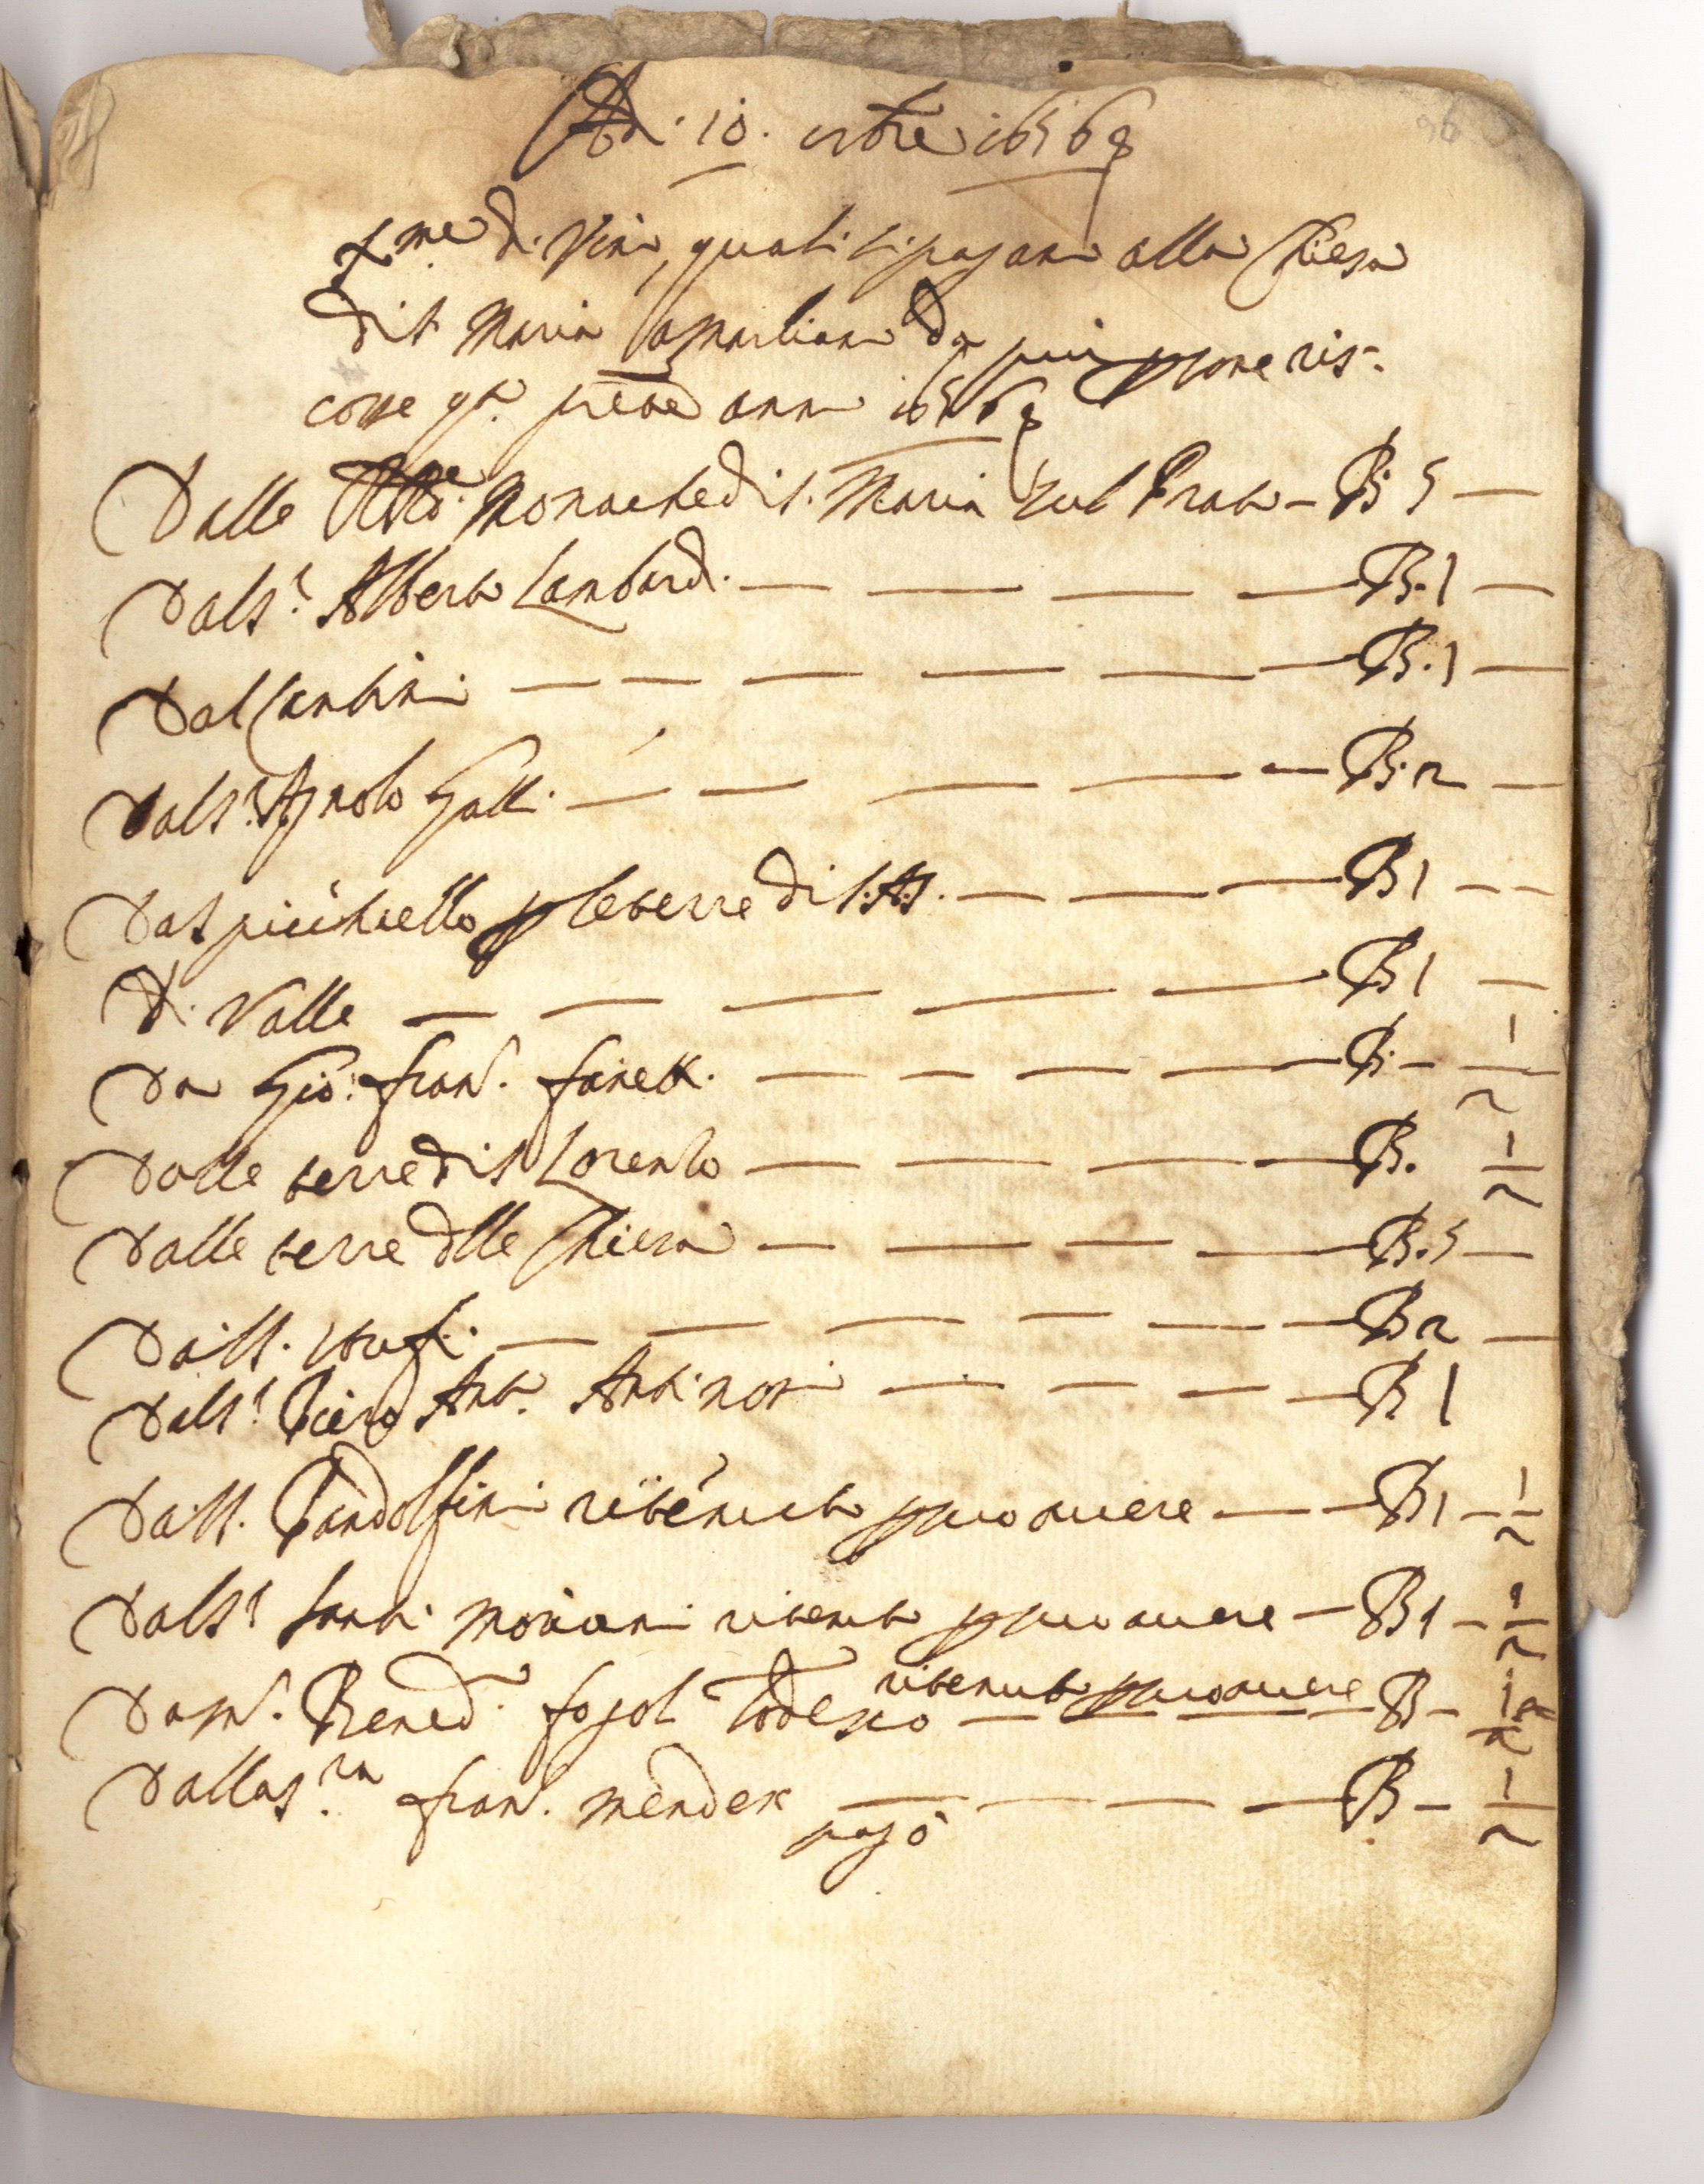 Adi 10. ottre 1656
Xme di Vini, quali si pagano alla Chiesa
di S. Maria a Martiano da più persone ris-
cosse qto. prete anno 1656
Dalle RRde. Monache di S. Maria sul Prato - B 5 —
Dal Sr. Alberto Lambardi. — B. 1 —
Dal Cantini — B. 1 —
Dal Sr. Agnolo Galli. — B. 2 —
Dal picchiello p le terre di S. A. S. — B 1 — —
Di Valle — B 1 —
Da Gio: Fran. Fanetti. — B. — 1/2
Dalle terre di S. Lorenzo — B. 1/2
Dalle terre dlle Chiesa — B. 5 —
Da SS. — B 2 —
Dal Sr. Piero Anto. Antinori — B 1
Da SS. Pandolfini ritenuto p suo auere — B 1 — 1/2
Dal Sr. Santi ritenuto p suo auere — B 1 — 1/2
Da m. Bened. Todesco ritenuto p suo auere B — 1/2
Dalla Sra. Fran. Mendex — B — 1/2
pagò